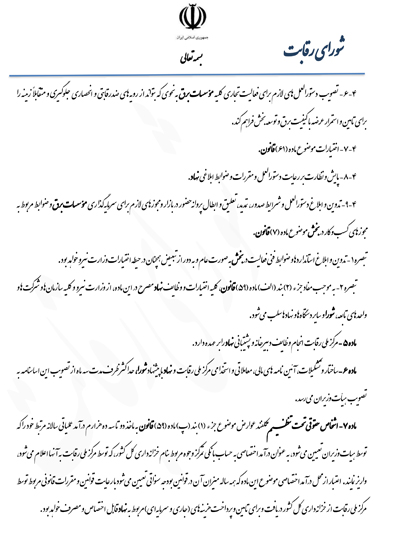 جمهوری اسلامی ایران
شورای رقابت
بسمه تعالی
۴-۶- تصویب دستورالعمل‌های لازم برای فعالیت تجاری کلیه مؤسسات برق به نحوی که بتواند از رویه‌های ضدرقابتی و انحصاری جلوگیری و متقابلاً زمینه را
برای تامین و استمرار عرضه با کیفیت برق و توسعه بخش فراهم کند.
۴-۷- اختیارات موضوع ماده (۶۱) قانون.
۴-۸- پایش و نظارت بر رعایت دستورالعمل و مقررات و ضوابط ابلاغی نهاد.
۴-۹- تدوین و ابلاغ دستورالعمل و شرایط صدور، تمدید، تعلیق و ابطال پروانه حضور در بازار و مجوزهای لازم برای سرمایه‌گذاری مؤسسات برق و ضوابط مربوط به
مجوزهای کسب و کار در بخش موضوع ماده (۷) قانون.
تبصره۱- تدوین و ابلاغ استانداردها و ضوابط فنی فعالیت در بخش به صورت عام و به دور از تبعیض همچنان در حیطه اختیارات وزارت نیرو خواهد بود.
تبصره ۲- به موجب مفاد جزء (۲) بند (الف) ماده (۵۹) قانون، کلیه اختیارات و وظایف نهاد مصرح در این ماده، از وزارت نیرو و کلیه سازمان‌ها و شرکت‌ها و
واحدهای تابعه، شورا و سایر دستگاه‌ها و نهادها سلب می‌شود.
ماده۵- مرکز ملی رقابت انجام وظایف دبیرخانه و پشتیبانی نهاد را بر عهده دارد.
ماده۶- ساختار و تشکیلات، آئین نامه های مالی، معاملاتی و استخدامی مرکز ملی رقابت و نهاد با پیشنهاد شورا حداکثر ظرف مدت سه ماه از تصویب این اساسنامه به
تصویب هیات وزیران می‌رسد.
ماده ۷- اشخاص حقوقی تحت تنظیم مکلفند عوارض موضوع جزء (۱) بند (پ) ماده (۵۹) قانون به ماخذ دو تا سه در هزار درآمد عملیاتی سالانه مرتبط خود را که
توسط هیات وزیران تعیین می‌شود، به عنوان درآمد اختصاصی به حساب بانکی تمرکز وجوه مربوط بنام خزانه‌داری کل کشور که توسط مرکز ملی رقابت به آنها اعلام می‌شود،
واریز نمایند. اعتبار از محل درآمد اختصاصی موضوع این ماده که همه ساله میزان آن در قوانین بودجه سنواتی تعیین می‌شود با رعایت قوانین و مقررات قانونی مربوط توسط
مرکز ملی رقابت از خزانه‌داری کل کشور دریافت و برای تامین و پرداخت هزینه‌های (جاری و سرمایه‌ای) مربوط به نهاد قابل اختصاص و مصرف خواهد بود.